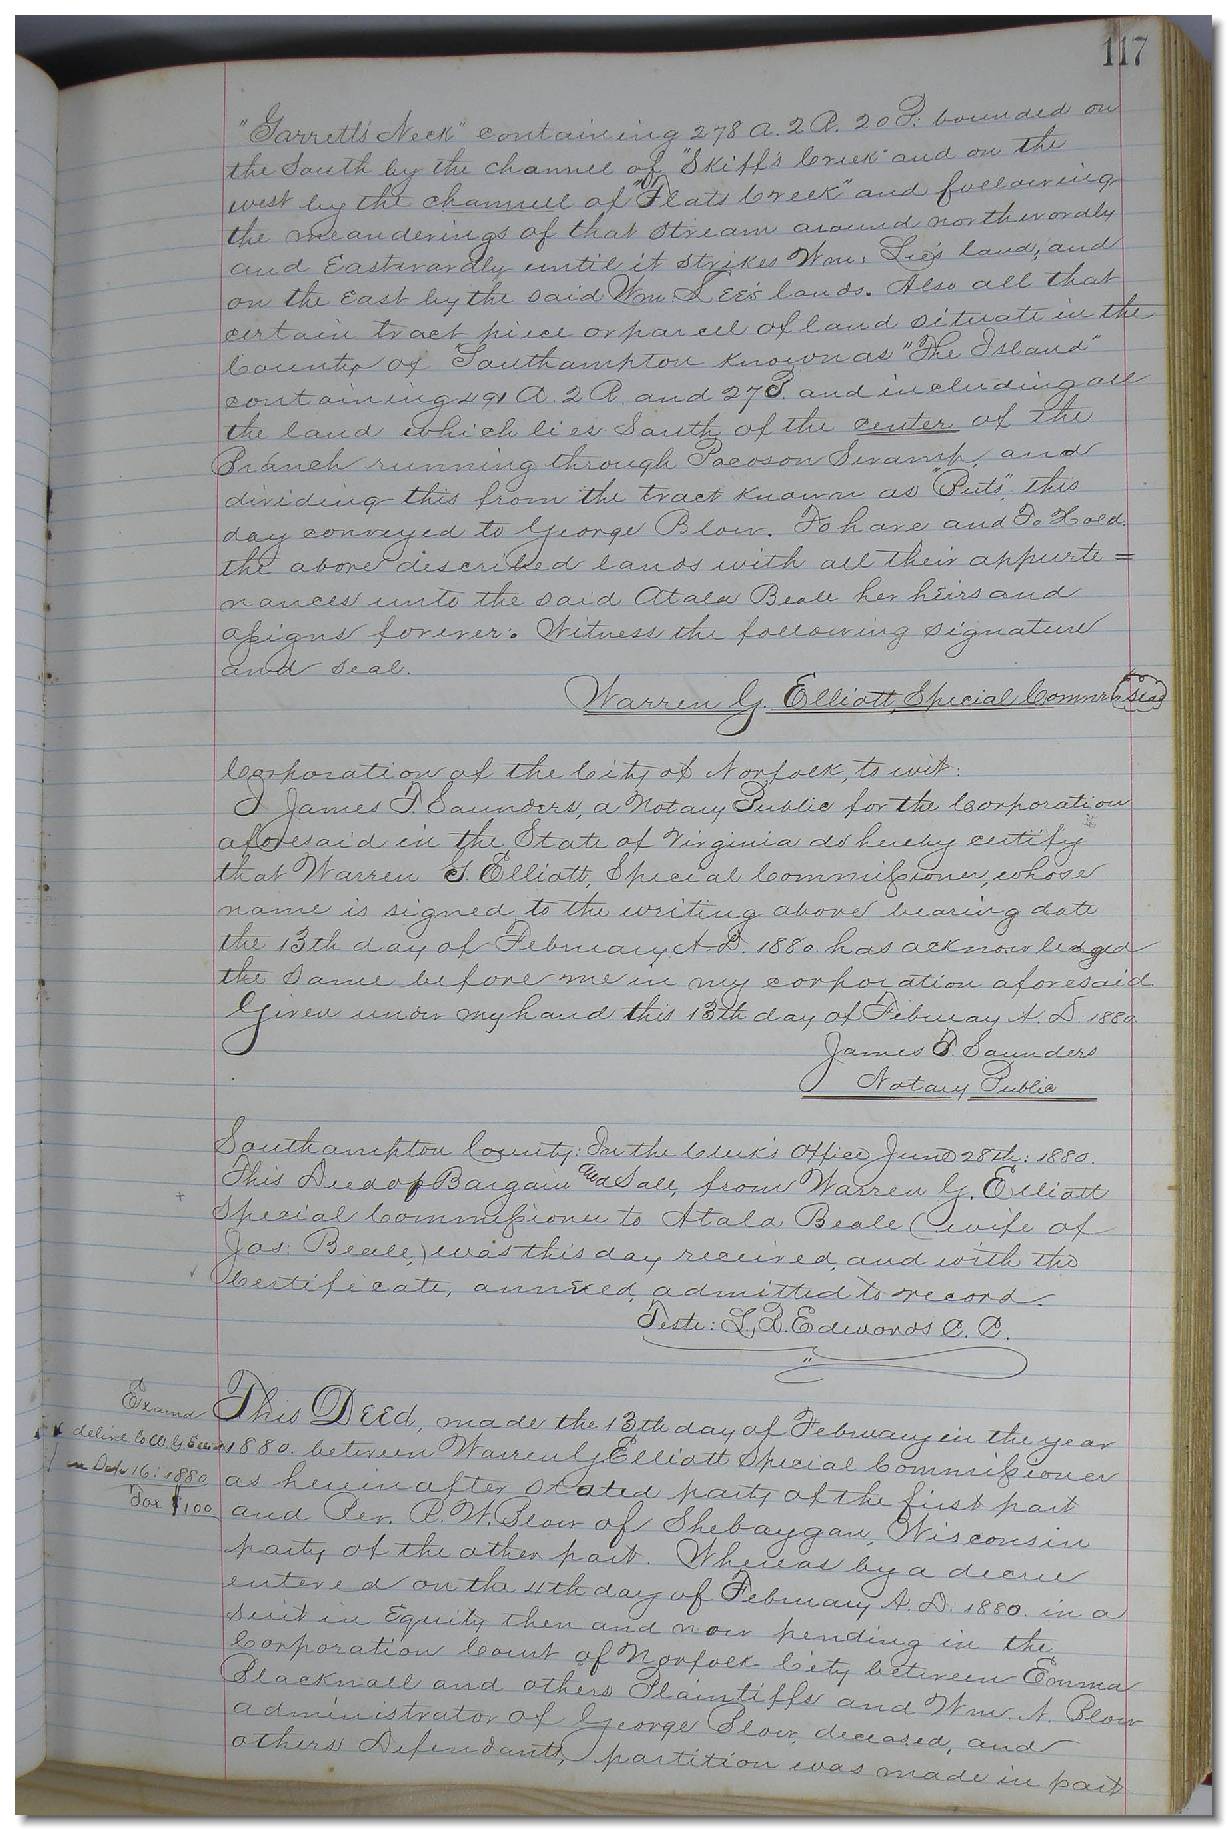 117
"Garrett's Neck" containing 278 A. 2 R. 20 P. bounded on
the South by the channel of "Skiff's Creek" and on the
west by the channel of "Flats Creek" and following
the meanderings of that Stream around northwardly
and Eastwardly until it strikes Wm. Lee's land, and
on the East by the said Wm Lee's lands. Also all that
certain tract piece or parcel of land situate in the
County of Southampton known as "The Island"
containing 491 A. 2 R. and 27 P. and including all
the land which lies South of the center of the
Branch running through Pocoson Swamp, and
dividing this from the tract known as "Pete's" this
day conveyed to George Blow. To have and To Hold
the above described lands with all their appurte=
nances unto the said Atala Beale her heirs and
assigns forever. Witness the following signature
and seal.
Warren G. Elliott, Special Commr. Seal
Corporation of the City of Norfolk, to wit:
I James T. Saunders, a Notary Public for the Corporation
aforesaid in the State of Virginia do hereby certify
that Warren G. Elliott, Special Commissioner, whose
name is signed to the writing above bearing date
the 13th day of February A.D. 1880 has acknowledged
the same before me in my corporation aforesaid
Given under my hand this 13th day of February A.D. 1880
James T. Saunders
Notary Public
Southampton County: In the Clerk's Office June 28th: 1880.
This Deed of Bargain and Sale, from Warren G. Elliott
Special Commissioner to Atala Beale (wife of
Jas: Beale,) was this day received, and with the
Certificate, annexed, admitted to record.
Teste: L. R. Edwards C. C.
Examd
delivd to W. G.
Dec 16: 1880
Tax $1.00
This Deed, made the 13th day of February in the year
1880. between Warren G Elliott Special Commissioner
as hereinafter stated party of the first part
and Rev. R. W. Blow of Shebaygan, Wisconsin
party of the other part. Whereas by a decree
entered on the 4th day of February A.D. 1880. in a
suit in Equity then and now pending in the
Corporation Court of Norfolk City between Emma
Blacknall and others Plaintiffs and Wm. N. Blow
administrator of George Blow, deceased, and
others Defendants, partition was made in part